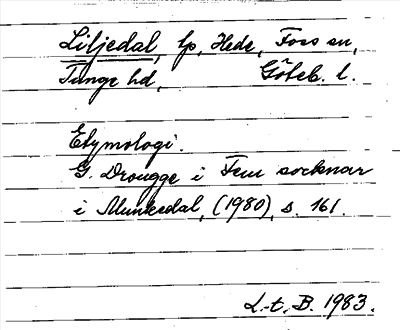 Liljedal, lp, Hede, Foss sn,
Tunge hd, Göteb. l.
Etymologi.
G. Drougge i Fem socknar
i Munkedal, (1980), s. 161.
L.-t. B. 1983.